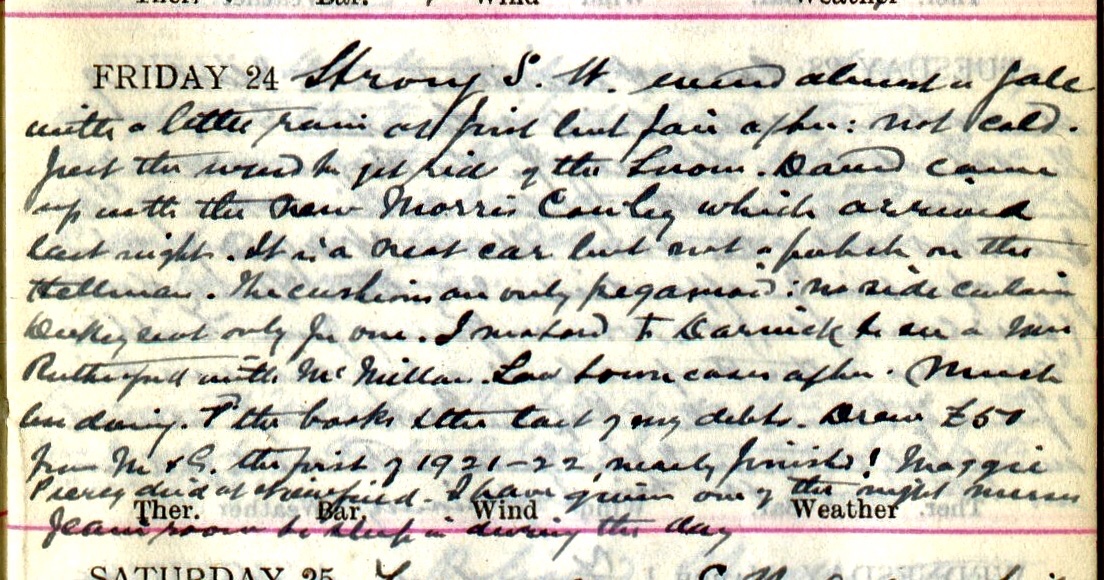 Ther. Bar. Wind Weather
FRIDAY 24 Strong S. W. wind almost a gale
with a little rain at first but fair after: not cold.
Just the wind to get rid of the Snow. David came
up with the new Morris Cowley which arrived
last night. It is a neat car but not a patch on the
Hillman. The cushions are only pegamoid: no side curtain
Dickey seat only for one. I motored to Darnick to see a Mrs
Rutherford with McMillan. Saw town cases after. Much
in doing. P the books & the last of my debts. Drew £50
from M & G. the first of 1921-22, nearly finished! Maggie
Piercy died at . I have given one of the night nurses
Jean's room to sleep in during the day
Ther. Bar. Wind Weather
SATURDAY 25